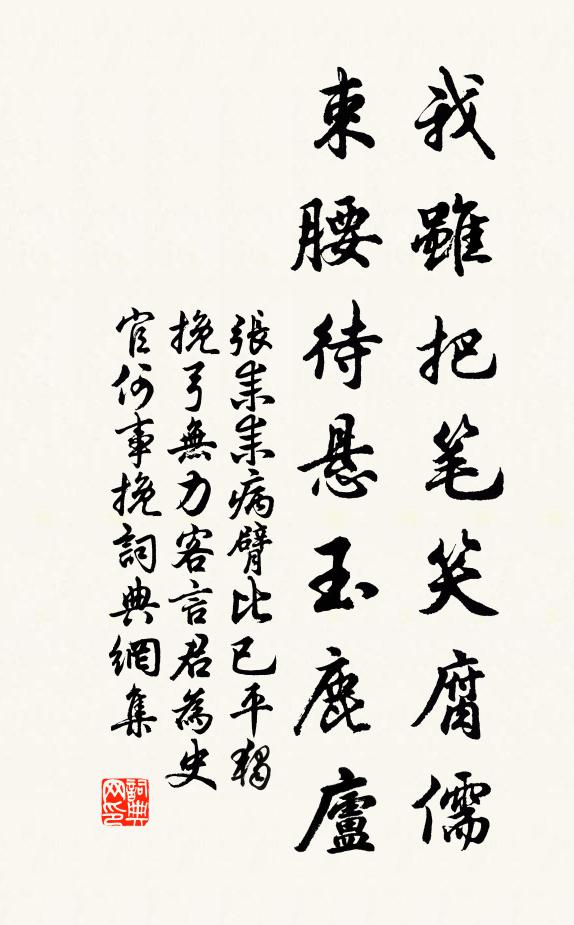 我雖把笔笑腐儒
束腰待悬玉鹿廬
張耒耒病臂比已平獨
挽弓無力客言君為史
官何事挽詞典網集
詞典
网印